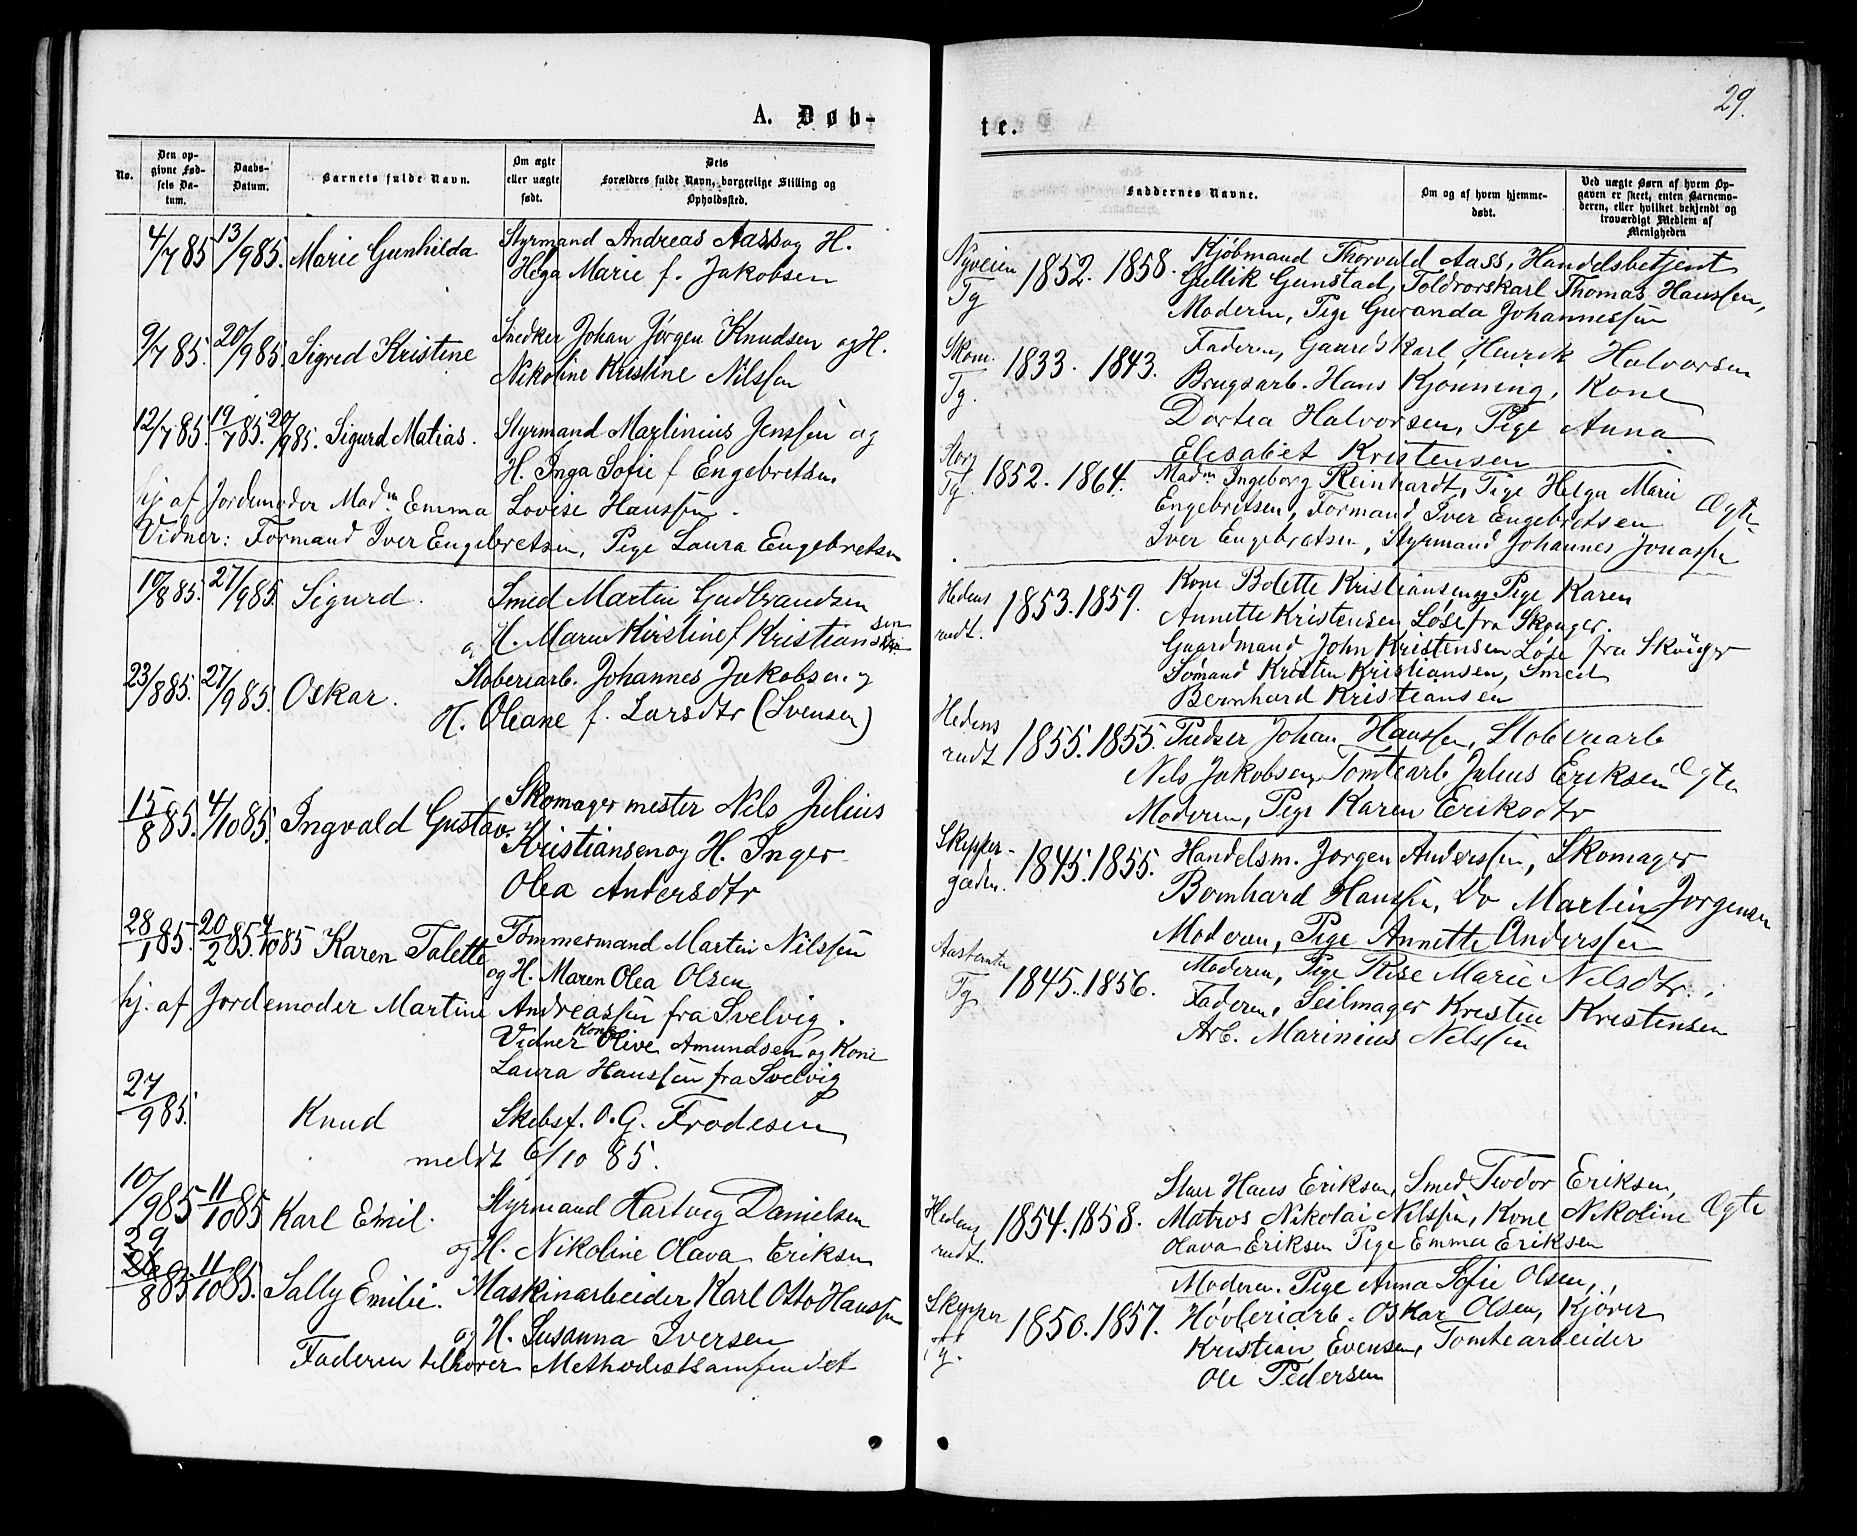 29.
A. Døb-
No.
Den op-
givne Fød-
sels Da-
tum.
Daabs-
Datum.
Barnets fulde Navn.
Om ægte
eller uægte
født.
Dets
Forældres fulde Navn, borgerlige Stilling og
Opholdssted.
4/7 85 13/9 85. Marie Gunhilda Styrmand Andreas Aass og H.
Helga Marie f. Jakobsen
9/7 85. 20/9 85. Sigred Kristine Snedker Johan Jørgen Knudsen og H.
Nikoline Kristine Nilssen
12/7 85. 19/7 85. 20/9 85. Sigurd Matias. Styrmand Martinius Jenssen og
H. Inga Sofie f Engebretsen
hj. af Jordemoder Madm. Emma Lovise Hanssen.
Vidner: Formand Iver Engebretsen, Pige Laura Engebretsen
10/8 85. 27/9 85. Sigurd. Smed Martin Gudbrandsen
og H. Maren Kirstine f Kristiansen
23/8 85. 27/9 85. Oskar. Støberiarb. Johannes Jakobsen og
H. Oleane f. Larsdtr (Svensen)
15/8 85. 4/10 85. Ingvald Gustav. Skomagermester Nils Julius
Kristiansen og H. Inger
Olea Andersdtr
28/1 85. 20/2 85. 4/10 85 Karen Talette Tømmermand Martin Nilssen
og H. Maren Olea Olsen
hj. af Jordemoder Martine Andreassen fra Svelvig.
Vidner Kone Olive Amundsen og Kone
Laura Hanssen fra Svelvig
27/9 85. Knud Skibsf. O. G. Frodesen
meldt 6/10 85.
10/9 85 11/10 85 Karl Emil. Styrmand Hartvig Danielsen
og H. Nikoline Olava Eriksen
29
26/8 85 11/10 85. Sally Emilie. Maskinarbeider Karl Otto Hanssen
og H. Susanna Iversen
Faderen tilhører Methodistsamfundet
te.
Faddernes Navne.
Om og af hvem hjemme-
døbt.
Ved uægte Børn af hvem Op-
gaven er skeet, enten Barnemo-
deren, eller hvilket bekjendt og
troværdigt Medlem af
Menigheden
Nyveien
Tg 1852. 1858. Kjøbmand Thorvald Aass, Handelsbetjent
Gullik Gunstad, Toldrorskarl Thomas Hanssen,
Moderen, Pige Guranda Johannessen
Skom.
Tg. 1833. 1843. Faderen, Gaardskarl Henrik Halvorsen
Brugsarb. Hans Kjønning, Kone
Dortea Halvorsen, Pige Anna
Elisabet Kristensen
Storg
Tg. 1852. 1864. Madm Ingeborg Reinhardt, Pige Helga Marie
Engebretsen, Formand Iver Engebretsen Ægte
Iver Engebretsen, Styrmand Johannes Jonassen
Hedens
rudt. 1853. 1859. Kone Bolette Kristiansen og Pige Karen
Annette Kristensen Løse fra Skouger.
Gaardmand John Kristensen Løse fra Skouger
Sømand Kristen Kristiansen, Smed
Bernhard Kristiansen
Hedens
rudt 1855. 1855. Pudser Johan Hanssen, Støberiarb
Nils Jakobsen, Tomtearb Julius Eriksen Ægte
Moderen, Pige Karen Eriksdtr
Skipper-
gaden. 1845. 1855. Handelsm. Jørgen Anderssen, Skomager
Bernhard Hanssen, Do Martin Jørgensen
Moderen, Pige Annette Anderssen
Tg 1845. 1856. Moderen, Pige Rise Marie Nilsdtr.
Faderen, Seilmager Kristen Kristensen
Arb. Marinius Nilssen
Hedens
rudt. 1854. 1858. Stuer Hans Eriksen, Smed Tiodor Eriksen,
Matros Nikolai Nilssen, Kone Nikoline Ægte
Olava Eriksen Pige Emma Eriksen
Skipper
Tg. 1850. 1857. Moderen. Pige Anna Sofie Olsen,
Høvleriarb. Oskar Olsen, Kjører
Kristian Evensen, Tomtearbeider
Ole Pedersen